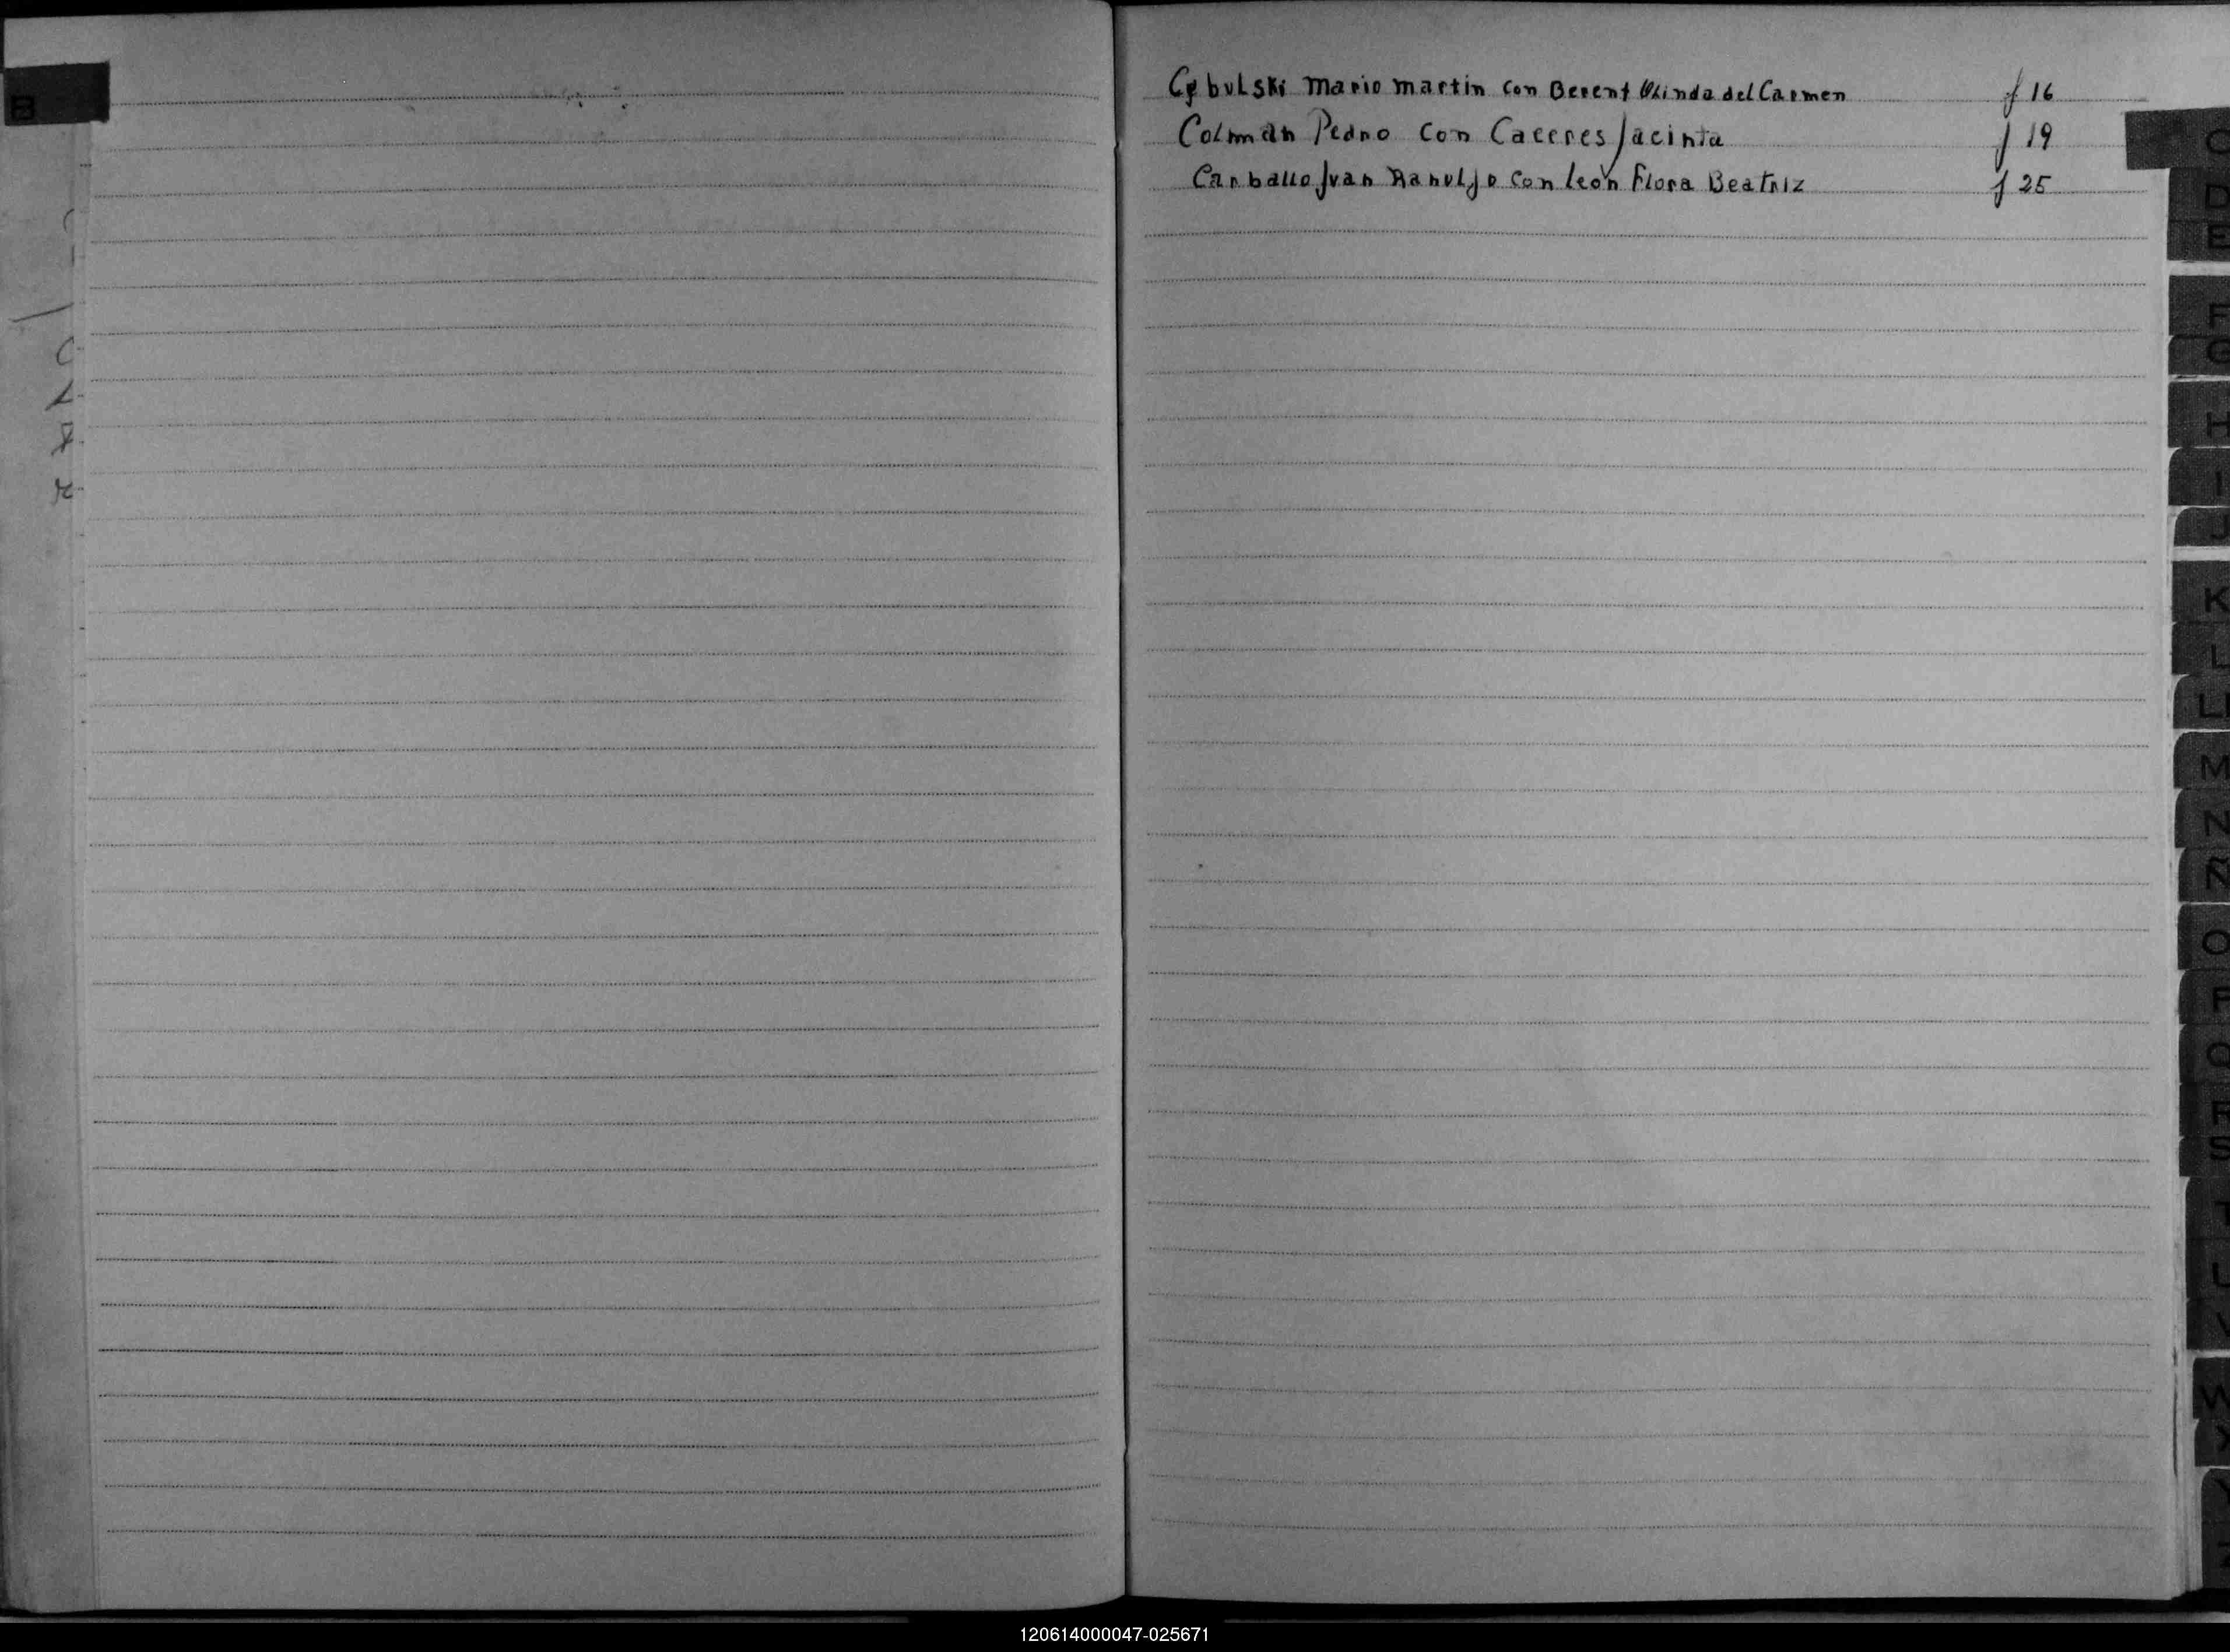 Cybulski Mario martin con Berent Olinda del Carmen f 16
Colman Pedro con Caceres Jacinta f 19
Carballo Juan Ranulfo con león Flora Beatriz f 25
B
C
D
E
F
G
H
I
J
K
L
LL
M
N
Ñ
O
P
Q
R
S
T
U
V
W
X
Y
Z
120614000047-025671